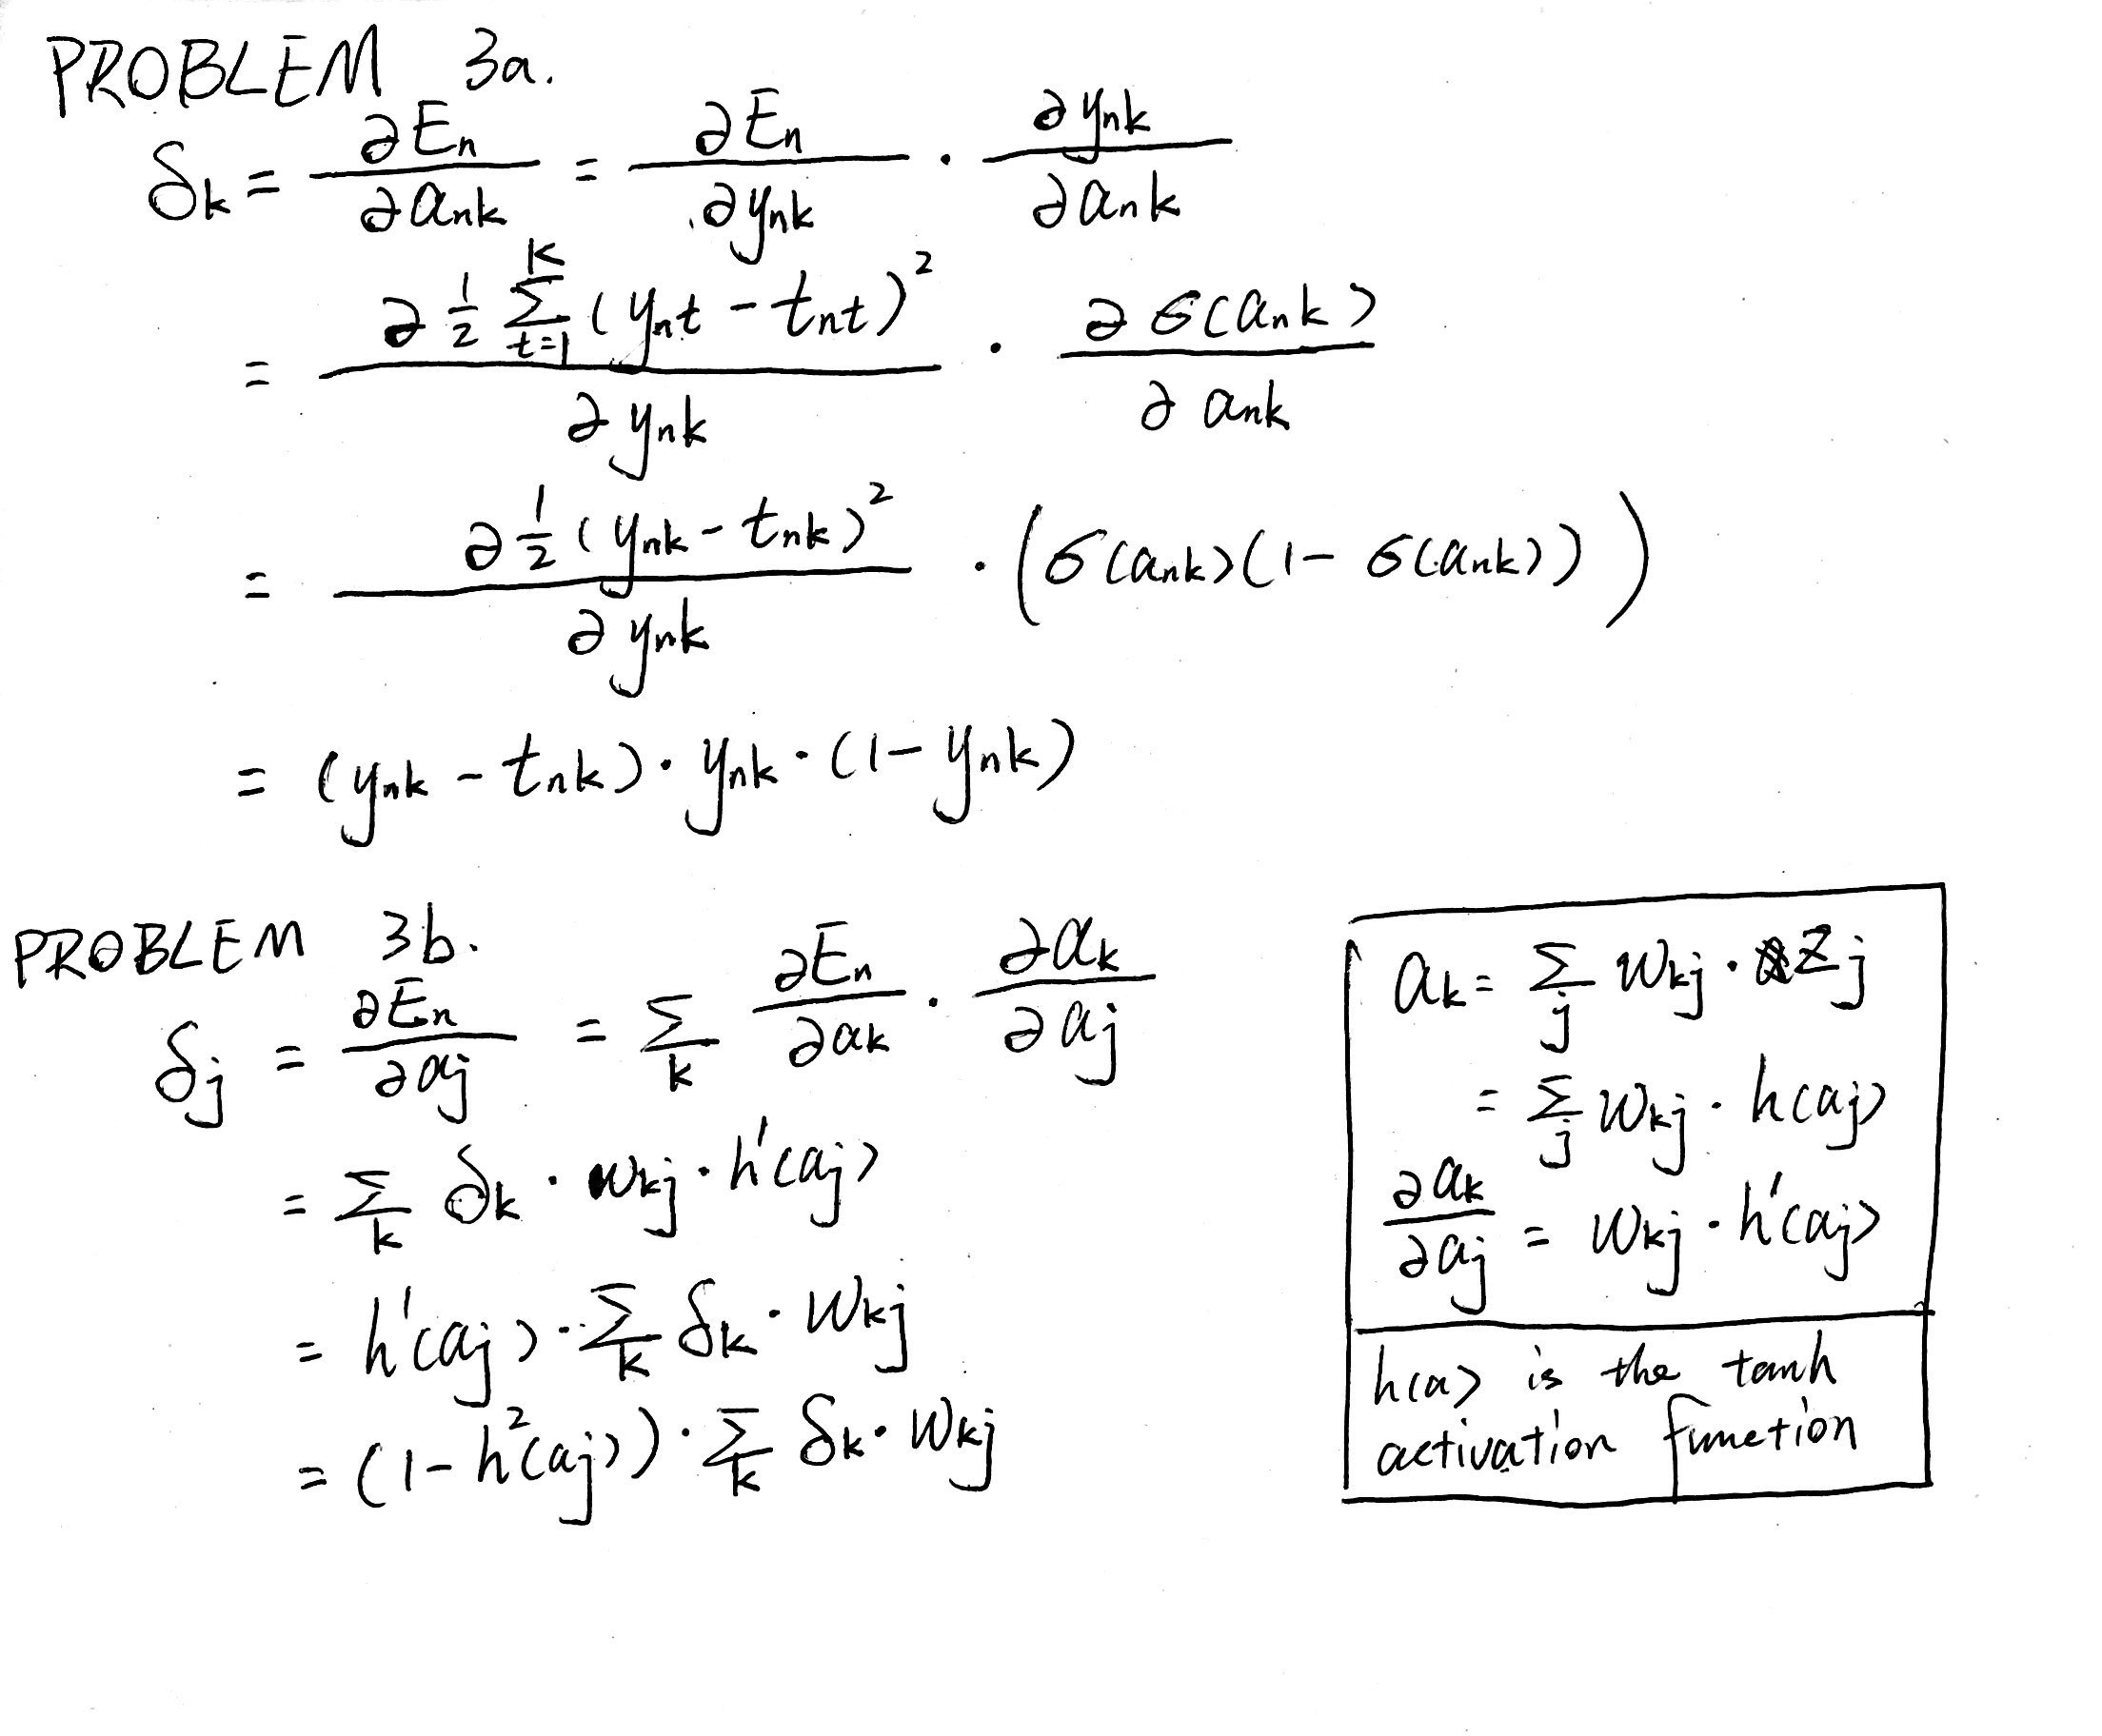 PROBLEM 3a.
δk = ∂En / ∂ank = ∂En / ∂ynk · ∂ynk / ∂ank
= ∂ 1/2 Σ_{t=1}^{K} (ynt - tnt)² / ∂ynk · ∂σ(ank) / ∂ank
= ∂ 1/2 (ynk - tnk)² / ∂ynk · (σ(ank)(1 - σ(ank)))
= (ynk - tnk) · ynk · (1 - ynk)
PROBLEM 3b.
δj = ∂En / ∂aj = Σ_k ∂En / ∂ak · ∂ak / ∂aj
= Σ_k δk · wkj · h'(aj)
= h'(aj) · Σ_k δk · wkj
= (1 - h²(aj)) · Σ_k δk · wkj
ak = Σ_j wkj · zj
= Σ_j wkj · h(aj)
∂ak / ∂aj = wkj · h'(aj)
h(a) is the tanh
activation function